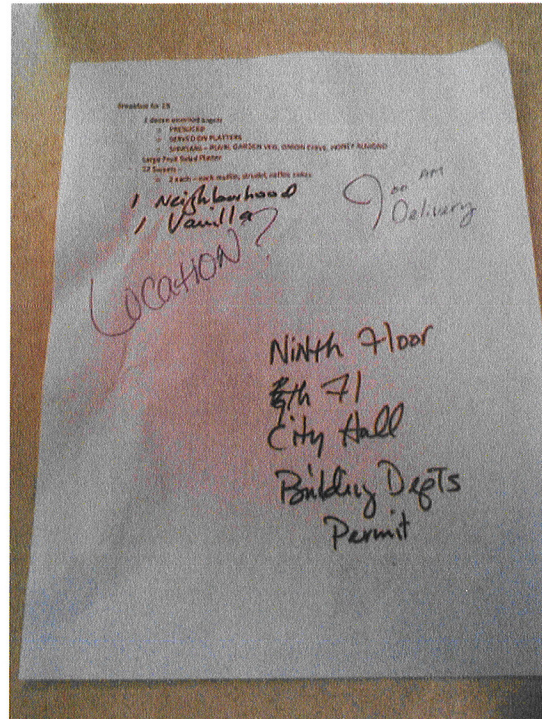 Breakfast for 15
2 dozen assorted bagels
PRESLICED
SERVED ON PLATTERS
SPREADS – PLAIN, GARDEN VEG, ONION CHIVE, HONEY ALMOND
Large Fruit Salad Platter
12 Sweets –
2 each – each muffin, strudel, coffee cakes
1 Neighborhood
1 Vanilla
9 00 AM
Delivery
Location?
Ninth Floor
9th Fl
City Hall
Building Depts
Permit